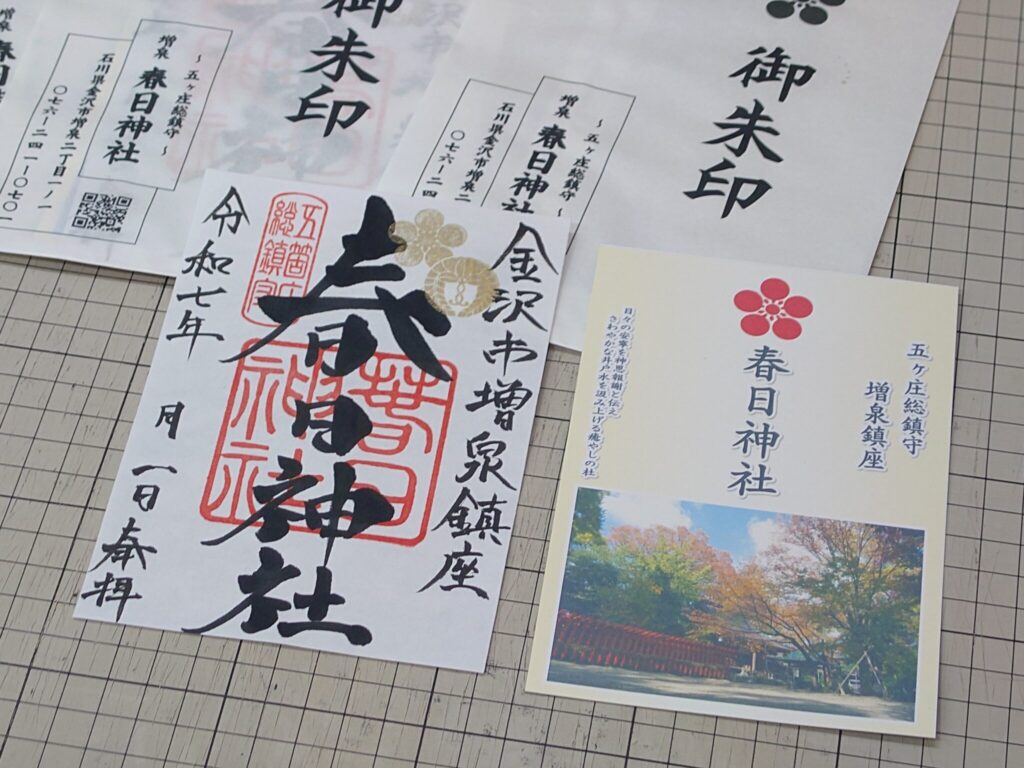 春日
御朱印
～五ヶ庄総鎮守～
増泉 春日神社
石川県金沢市増泉二丁目一ノ一
〇七六ー二四一ー〇七〇
御朱印
～五ヶ庄総鎮守～
増泉 春日神社
石川県金沢市増泉二
〇七六ー二四
金沢市増泉鎮座
春日神社
五箇庄
総鎮守
春日
神社
令和七年 月 一日奉拝
五ヶ庄総鎮守
増泉鎮座
春日神社
日々の安寧を神恩報謝と伝え
さわやかな井戸水を汲み上げる癒やしの社